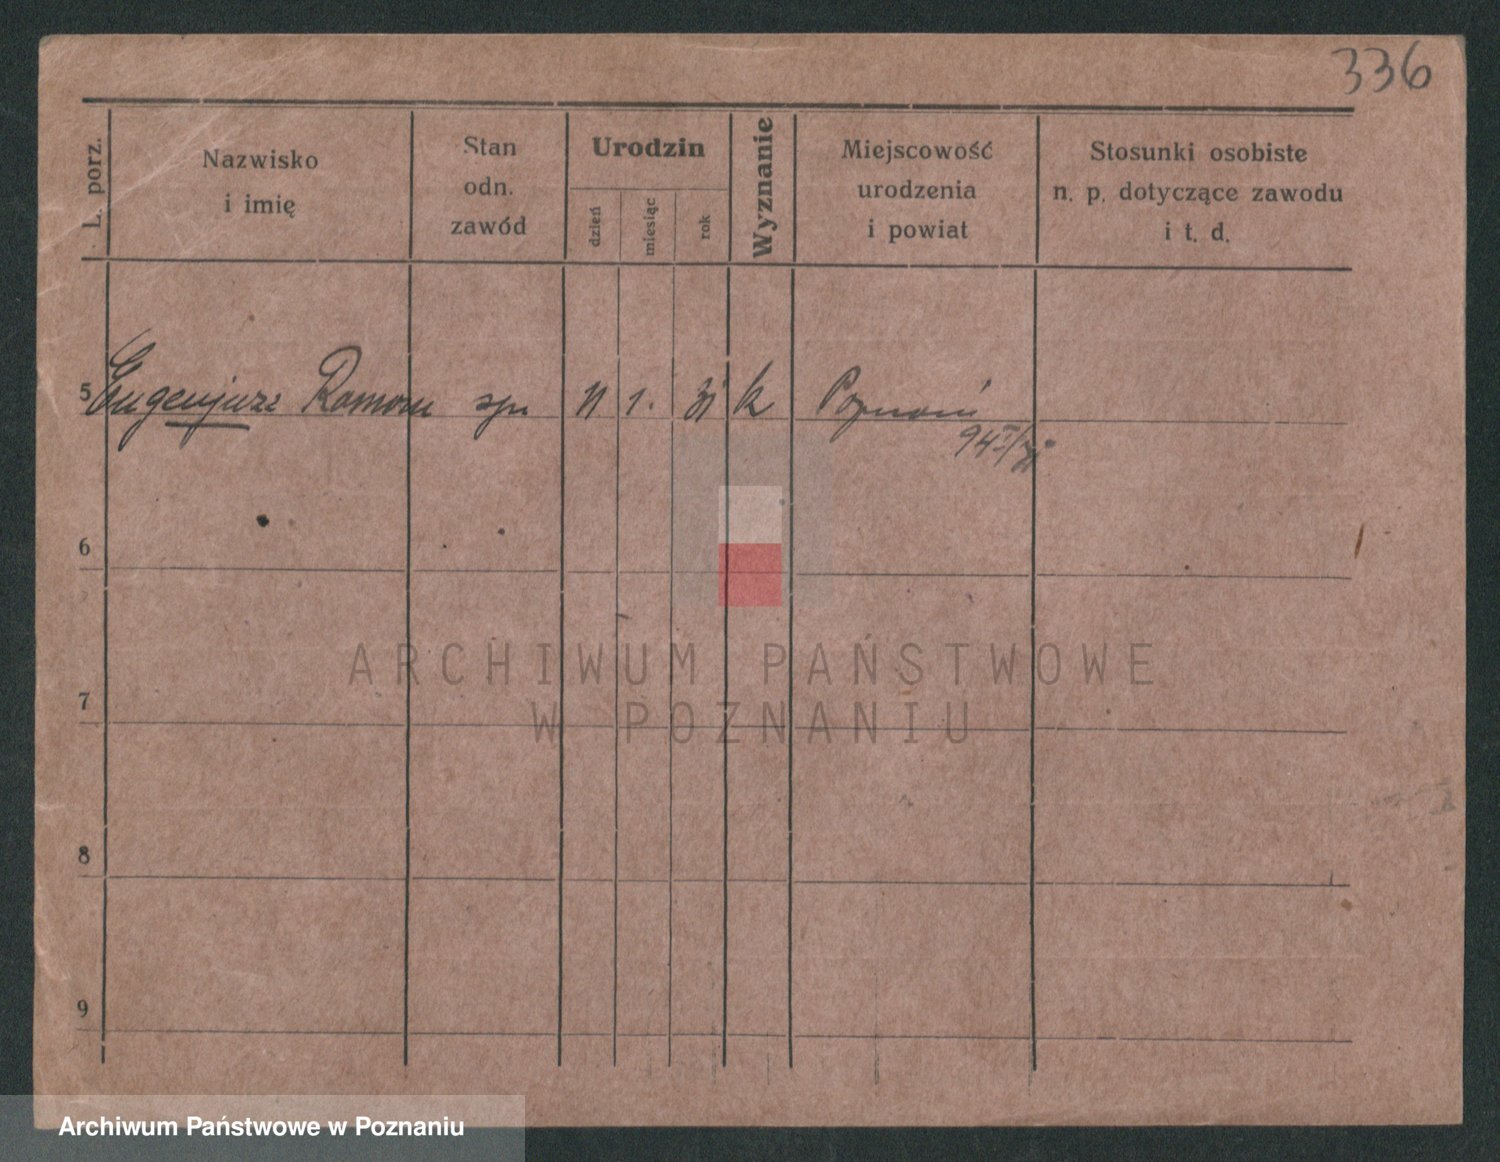 336
L. porz.
Nazwisko
i imię
Stan
odn.
zawód
Urodzin
dzień
miesiąc
rok
Wyznanie
Miejscowość
urodzenia
i powiat
Stosunki osobiste
n. p. dotyczące zawodu
i t. d.
5 Eugenjusz Roman sp. 11 1. 31 k Poznań
6
7
8
9
ARCHIWUM PAŃSTWOWE
W POZNANIU
Archiwum Państwowe w Poznaniu